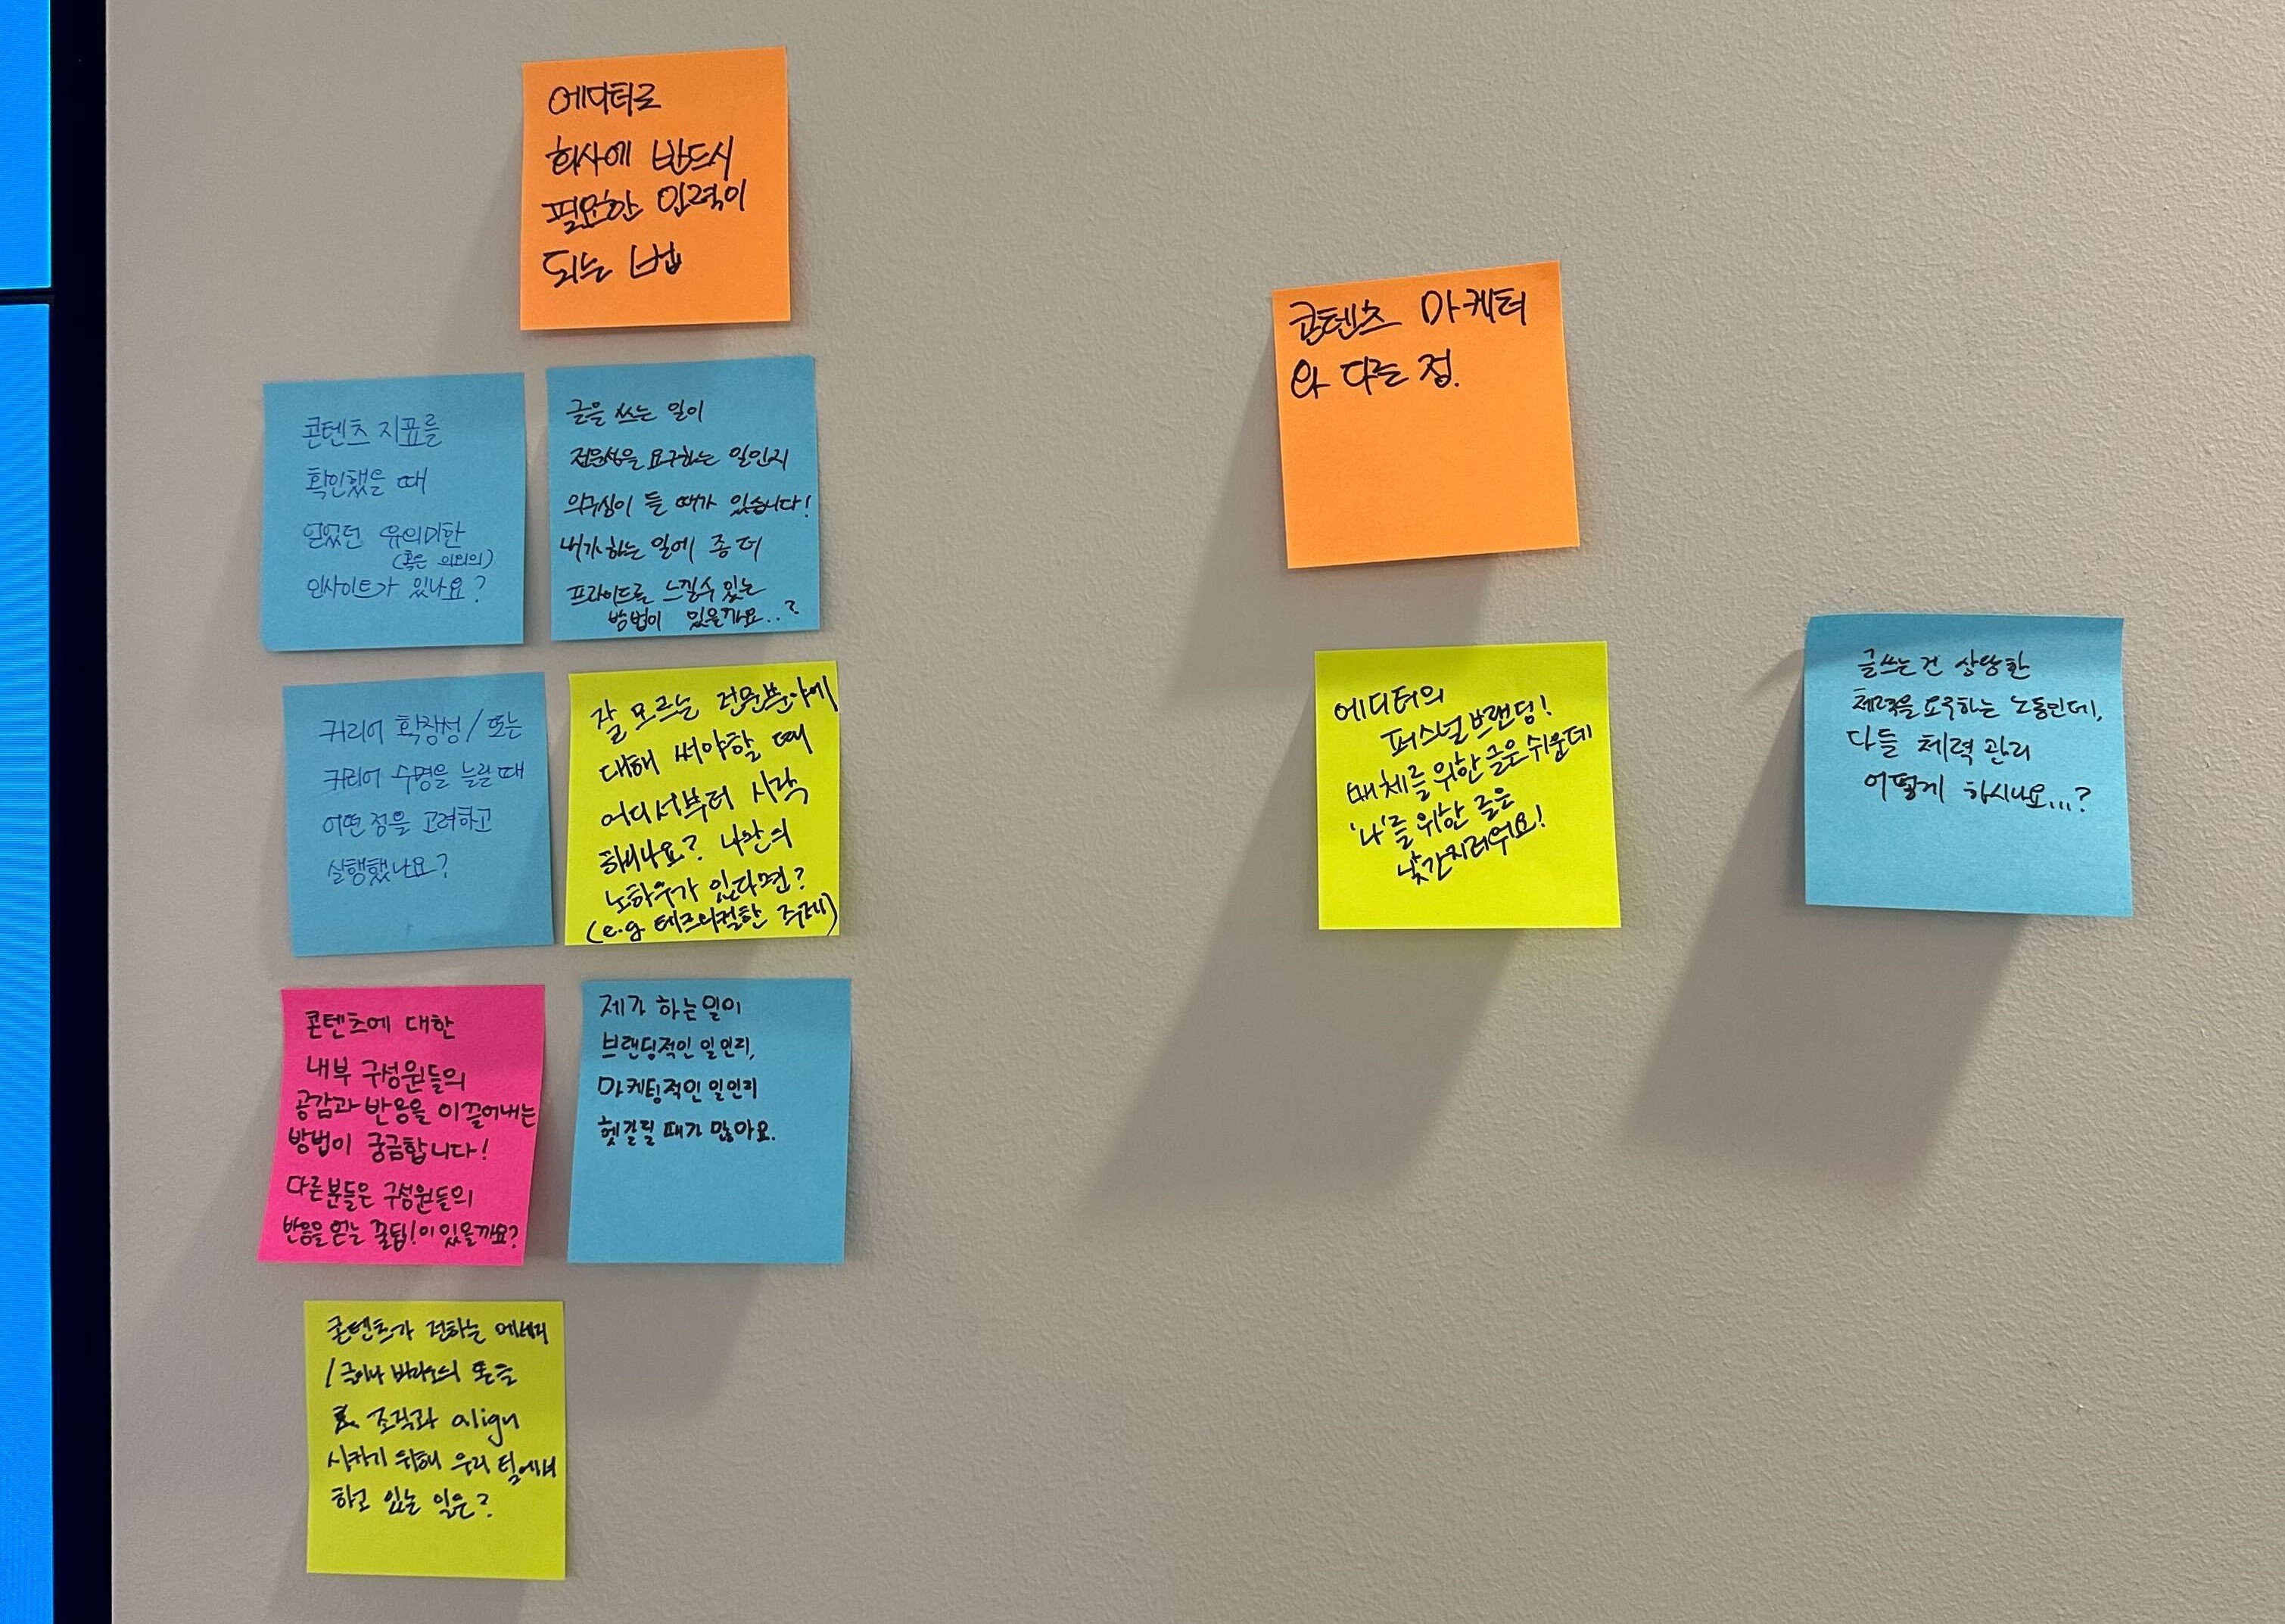 에디터로
회사에 반드시
필요한 인력이
되는 법
콘텐츠 지표를
확인했을 때
얻었던 유의미한
(혹은 의외의)
인사이트가 있나요?
글을 쓰는 일이
전문성을 요구하는 일인지
의구심이 들 때가 있습니다!
내가 하는 일에 좀 더
프라이드를 느낄 수 있는
방법이 있을까요..?
커리어 확장성 / 또는
커리어 수명을 늘릴 때
어떤 점을 고려하고
실행했나요?
잘 모르는 전문분야에
대해 써야할 때
어디서부터 시작
하시나요? 나만의
노하우가 있다면?
(e.g 테크니컬한 주제)
콘텐츠에 대한
내부 구성원들의
공감과 반응을 이끌어내는
방법이 궁금합니다!
다른분들은 구성원들의
반응을 얻는 꿀팁!이 있을까요?
제가 하는일이
브랜딩적인 일인지,
마케팅적인 일인지
헷갈릴 때가 많아요.
콘텐츠가 전하는 메세지
조직과 align
시키기 위해 우리 팀에서
하고 있는 일은?
콘텐츠 마케터
와 다른 점.
에디터의
퍼스널 브랜딩!
매체를 위한 글은 쉬운데
'나'를 위한 글은
낯간지러워요!
글쓰는 건 상당한
체력을 요구하는 노동인데,
다들 체력 관리
어떻게 하시나요...?